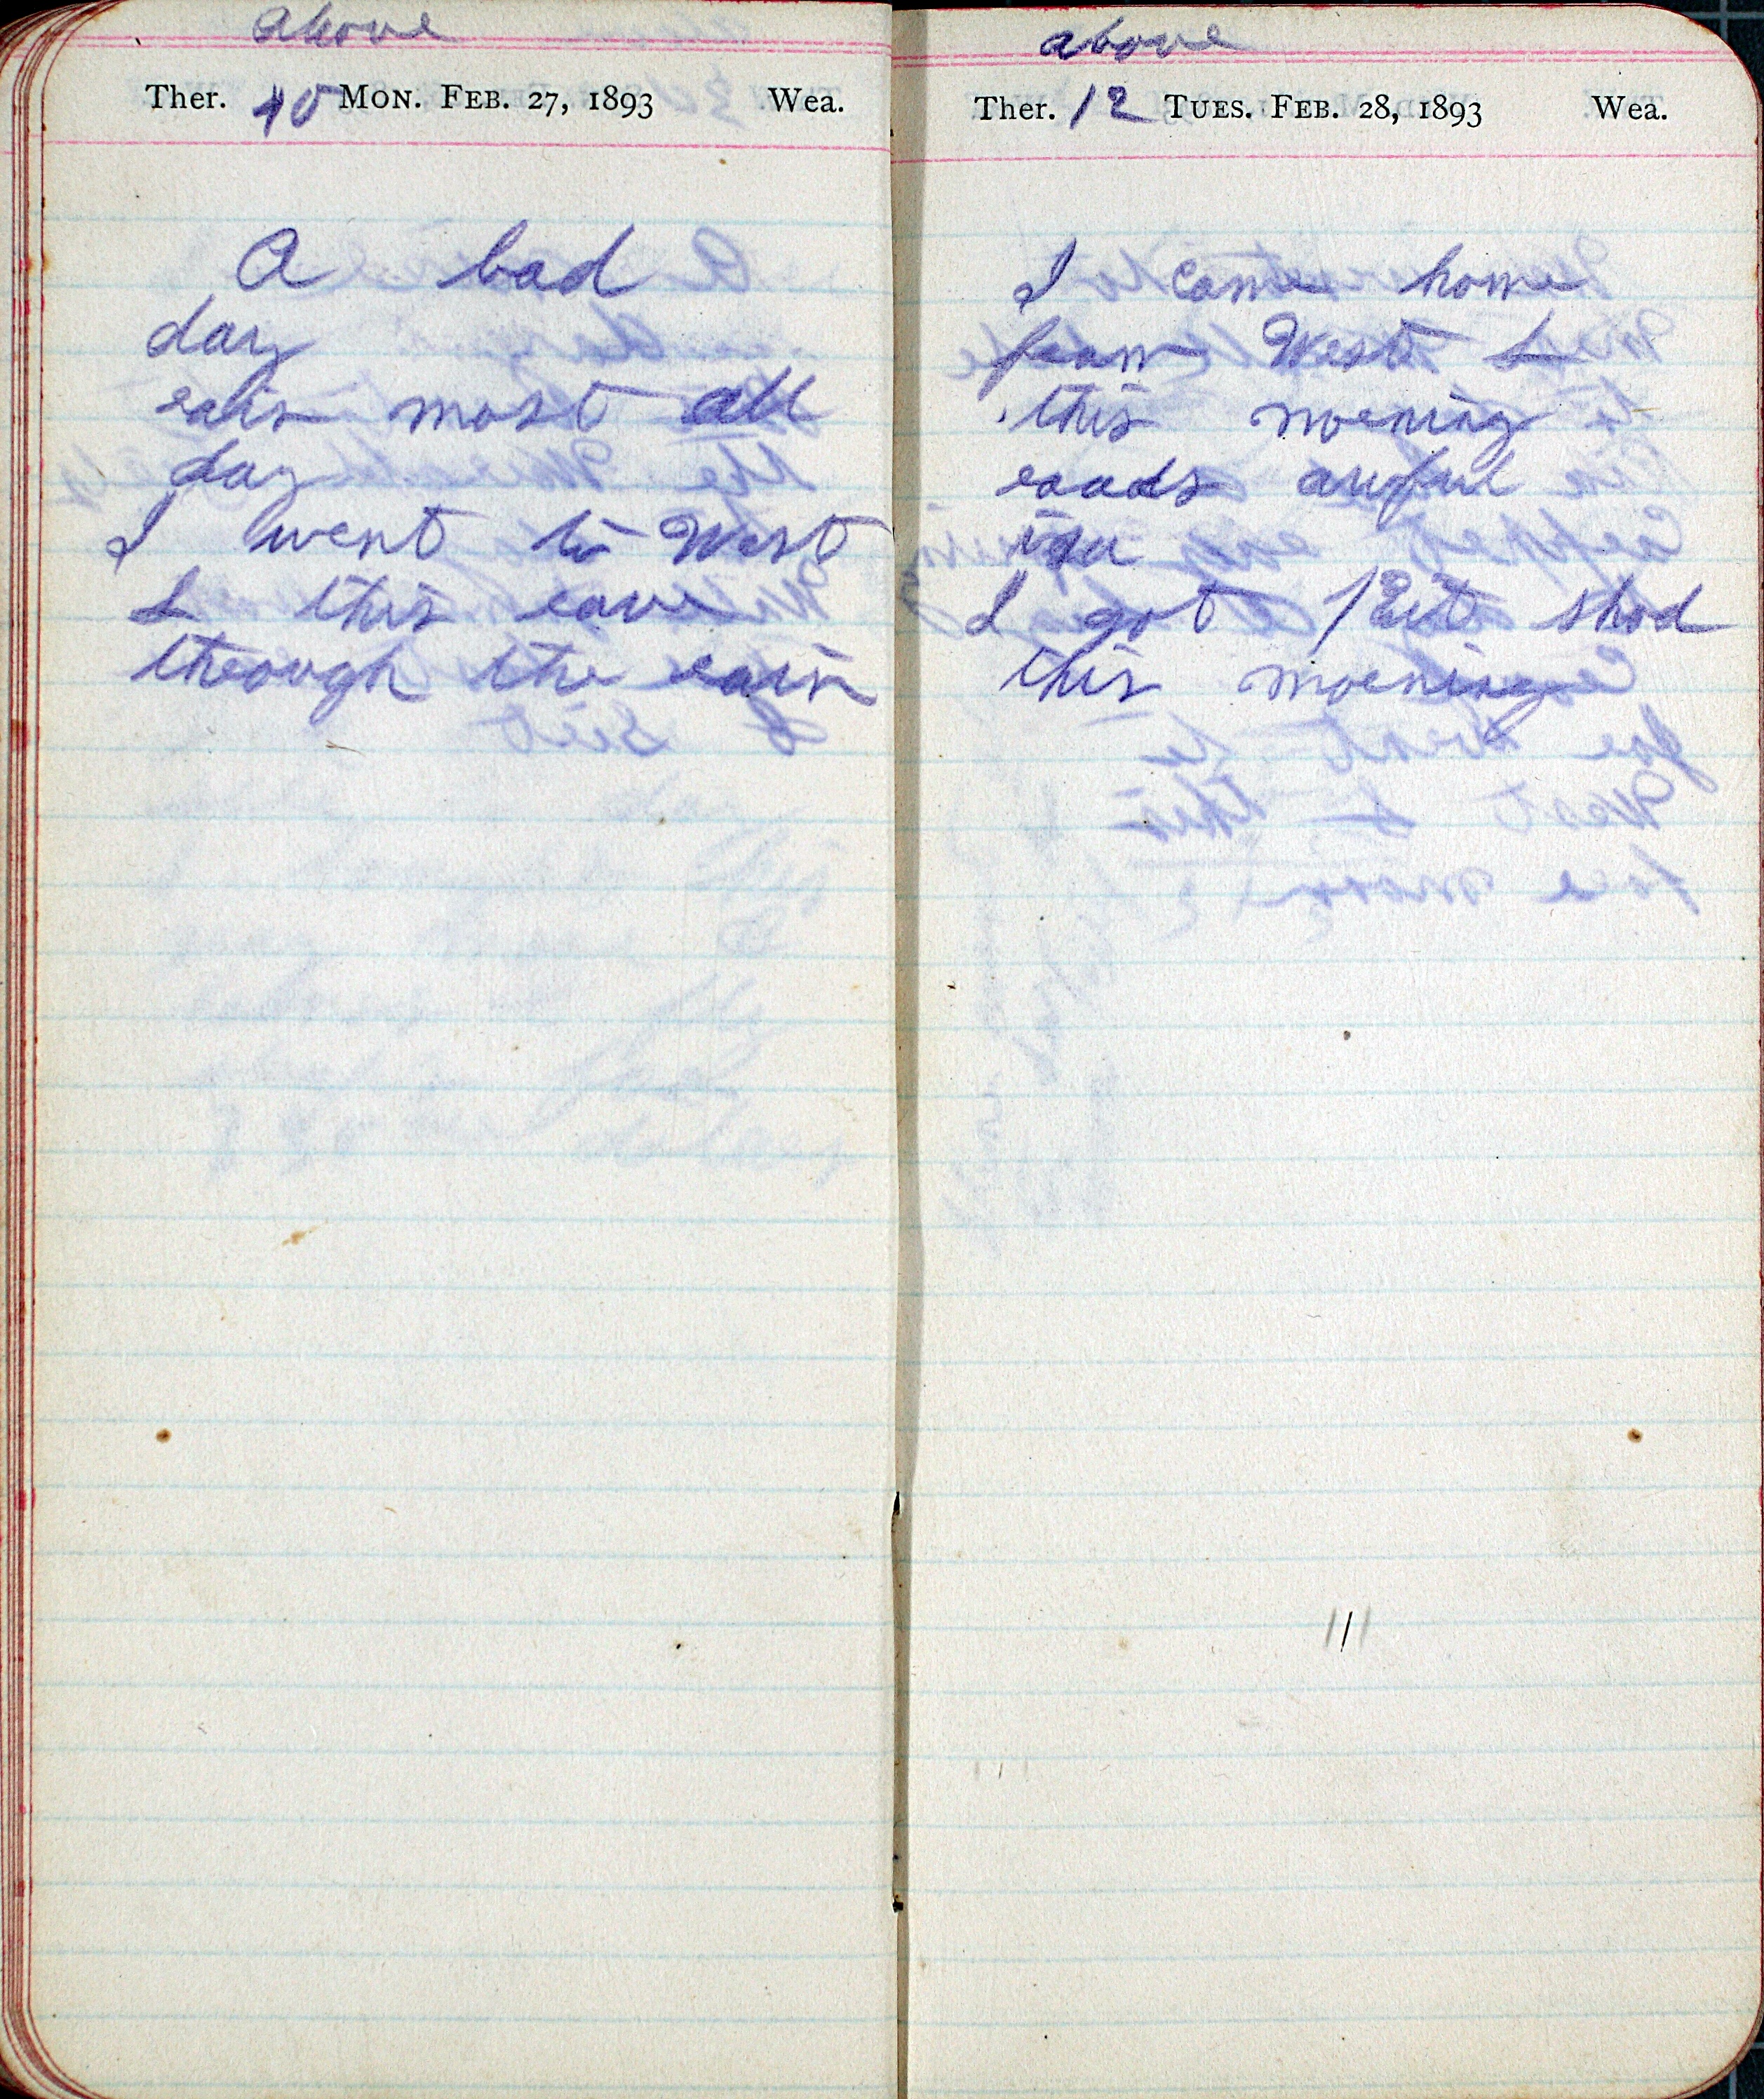 above
Ther. 40 MON. FEB. 27, 1893 Wea.
A bad
day
rain most all
day
I went to West
L this eave
through the rain
above
Ther. 12 TUES. FEB. 28, 1893 Wea.
I come home
from West L
this morning
roads awful
I got Kit shod
this morning